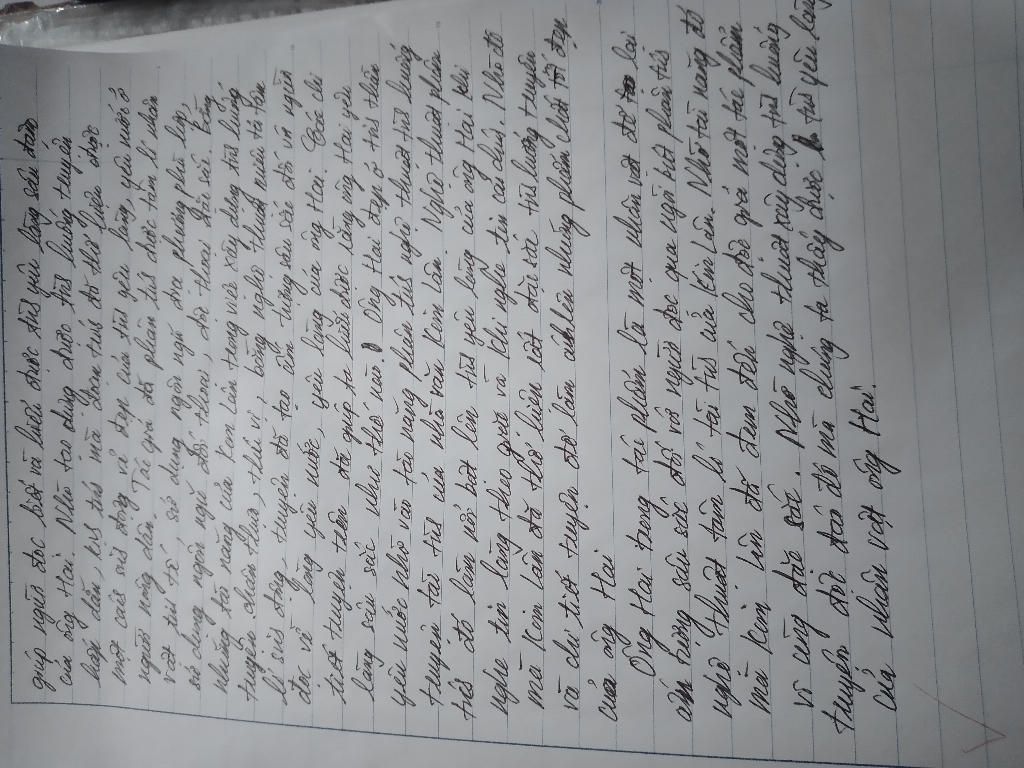 giúp người đọc biết và hiểu được tình yêu làng sâu sắc
của ông Hai. Nhờ tạo dựng được tình huống truyện
hấp dẫn, kịch tính mà đoạn trích đã thể hiện được
một cách sinh động vẻ đẹp của tình yêu làng, yêu nước ở
người nông dân. Tác giả đã phân tích được tâm lí nhân
vật tinh tế, sử dụng ngôn ngữ địa phương phù hợp
sử dụng ngôn ngữ đối thoại, độc thoại đặc sắc. Bằng
những tài năng của Kim Lân trong việc xây dựng tình huống
truyện chân thực, thú vị, bằng nghệ thuật miêu tả tâm
lí sinh động, truyện đã tạo ấn tượng sâu sắc đối với người
đọc về lòng yêu nước, yêu làng của ông Hai. Các chi
tiết truyện trên đã giúp ta hiểu được rằng ông Hai yêu
làng sâu sắc như thế nào. Ông Hai đẹp ở tinh thần
yêu nước nhờ vào tài năng phân tích nghệ thuật tình huống
truyện tài tình của nhà văn Kim Lân. Nghệ thuật phân
tích đó làm nổi bật lên tình yêu làng của ông Hai khi
nghe tin làng theo giặc và khi nghe tin cải chính. Nhờ đó
mà Kim Lân đã thể hiện rất đổi tài tình huống truyện
và chi tiết truyện đó làm ánh lên những phẩm chất tốt đẹp
của ông Hai.
Ông Hai trong tác phẩm là một nhân vật để lại
ấn tượng sâu sắc đối với người đọc qua ngòi bút phân tích
nghệ thuật tâm lí tài tình của Kim Lân. Nhờ tài năng đó
mà Kim Lân đã đem đến cho độc giả một tác phẩm
vô cùng đặc sắc. Nhờ nghệ thuật xây dựng tình huống
truyện độc đáo đó mà chúng ta thấy được tình yêu làng
của nhân vật ông Hai.